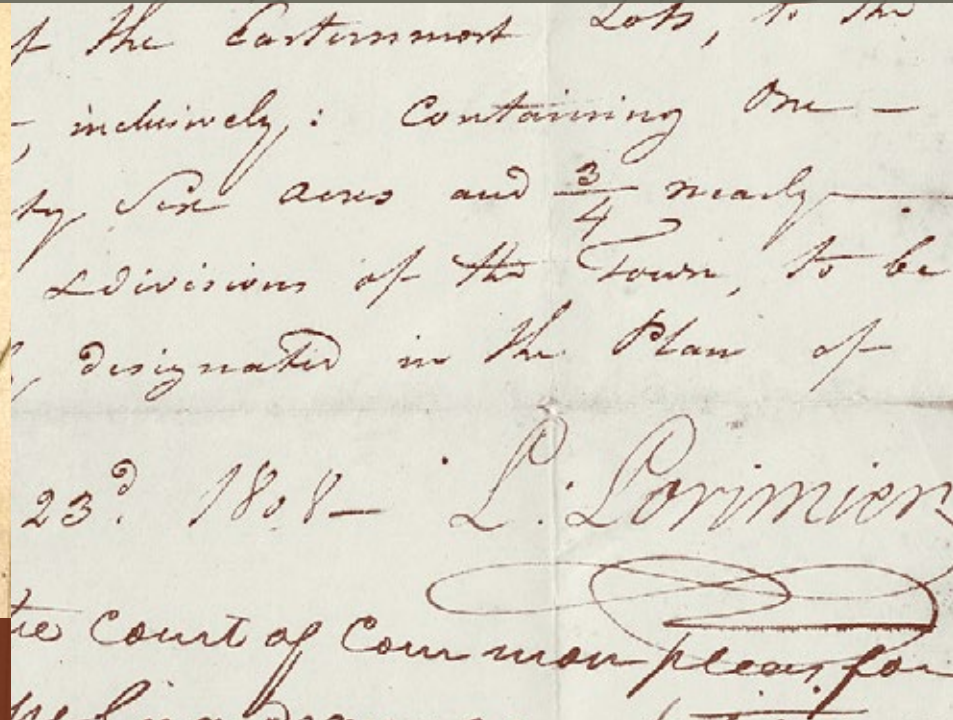 of the Easternmost Lots, to the
inclusively,: Containing One –
ty Six acres and 3/4 nearly
&divisions of the Town, to be
designated in the Plan of
23d. 1808– L. Lorimier
the Court of Common pleas for